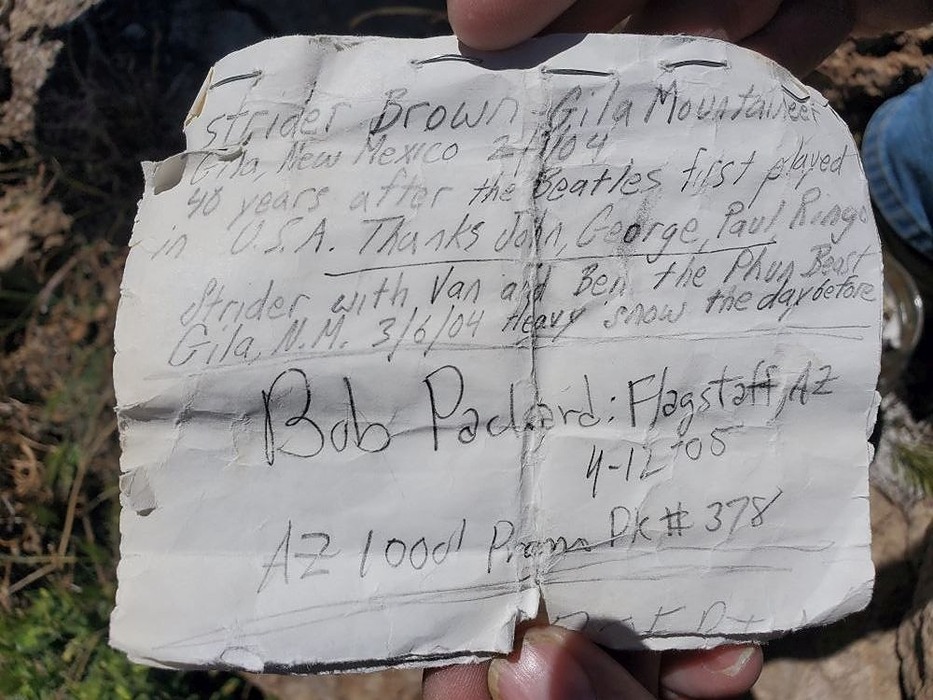 Strider Brown - Gila Mountaineer
Gila, New Mexico 2/1/04
40 years after the Beatles first played
in U.S.A. Thanks John, George, Paul Ringo
Strider with Van and Ben the Phun Beast
Gila, N.M. 3/6/04 Heavy snow the day before
Bob Packard: Flagstaff, AZ
4-12-05
AZ 1000' Prom Pk # 378